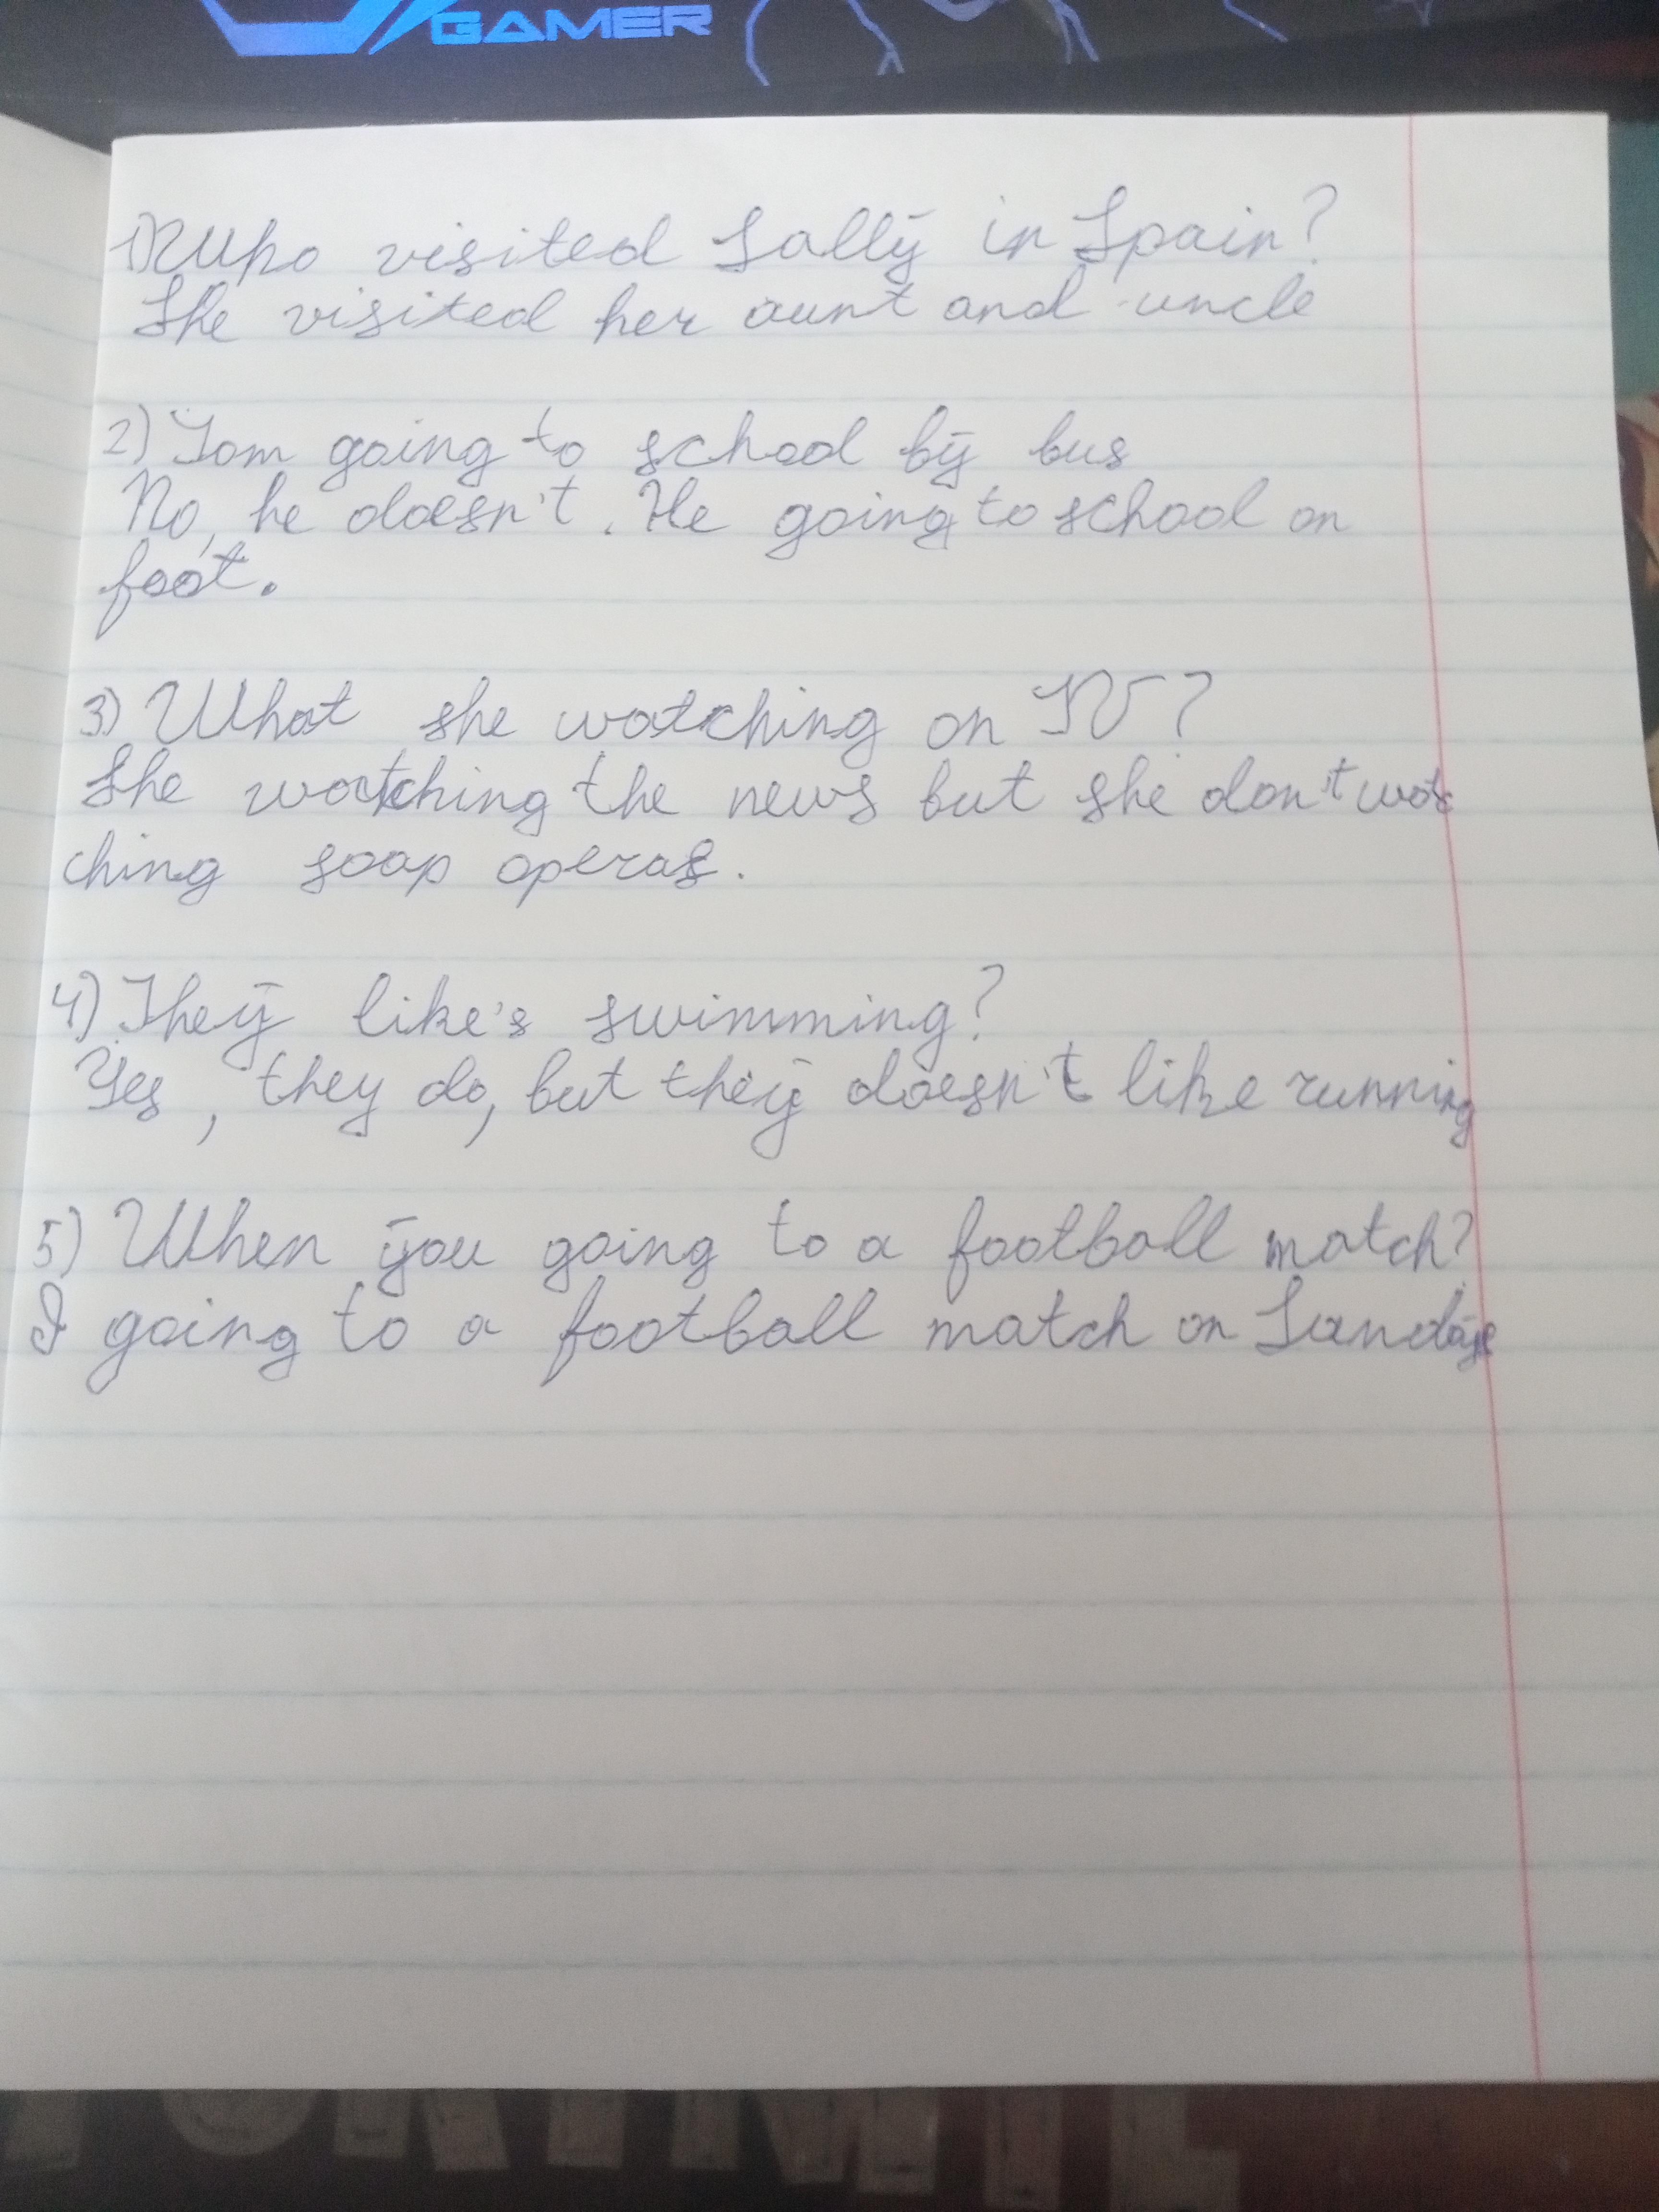 GAMER
1) Who visited Sally in Spain?
She visited her aunt and uncle
2) Tom going to school by bus
No, he doesn't. He going to school on
foot.
3) What she watching on TV?
She watching the news but she don't wat
ching soap operas.
4) They like's swimming?
Yes, they do, but they doesn't like running
5) When you going to a football match?
I going to a football match on